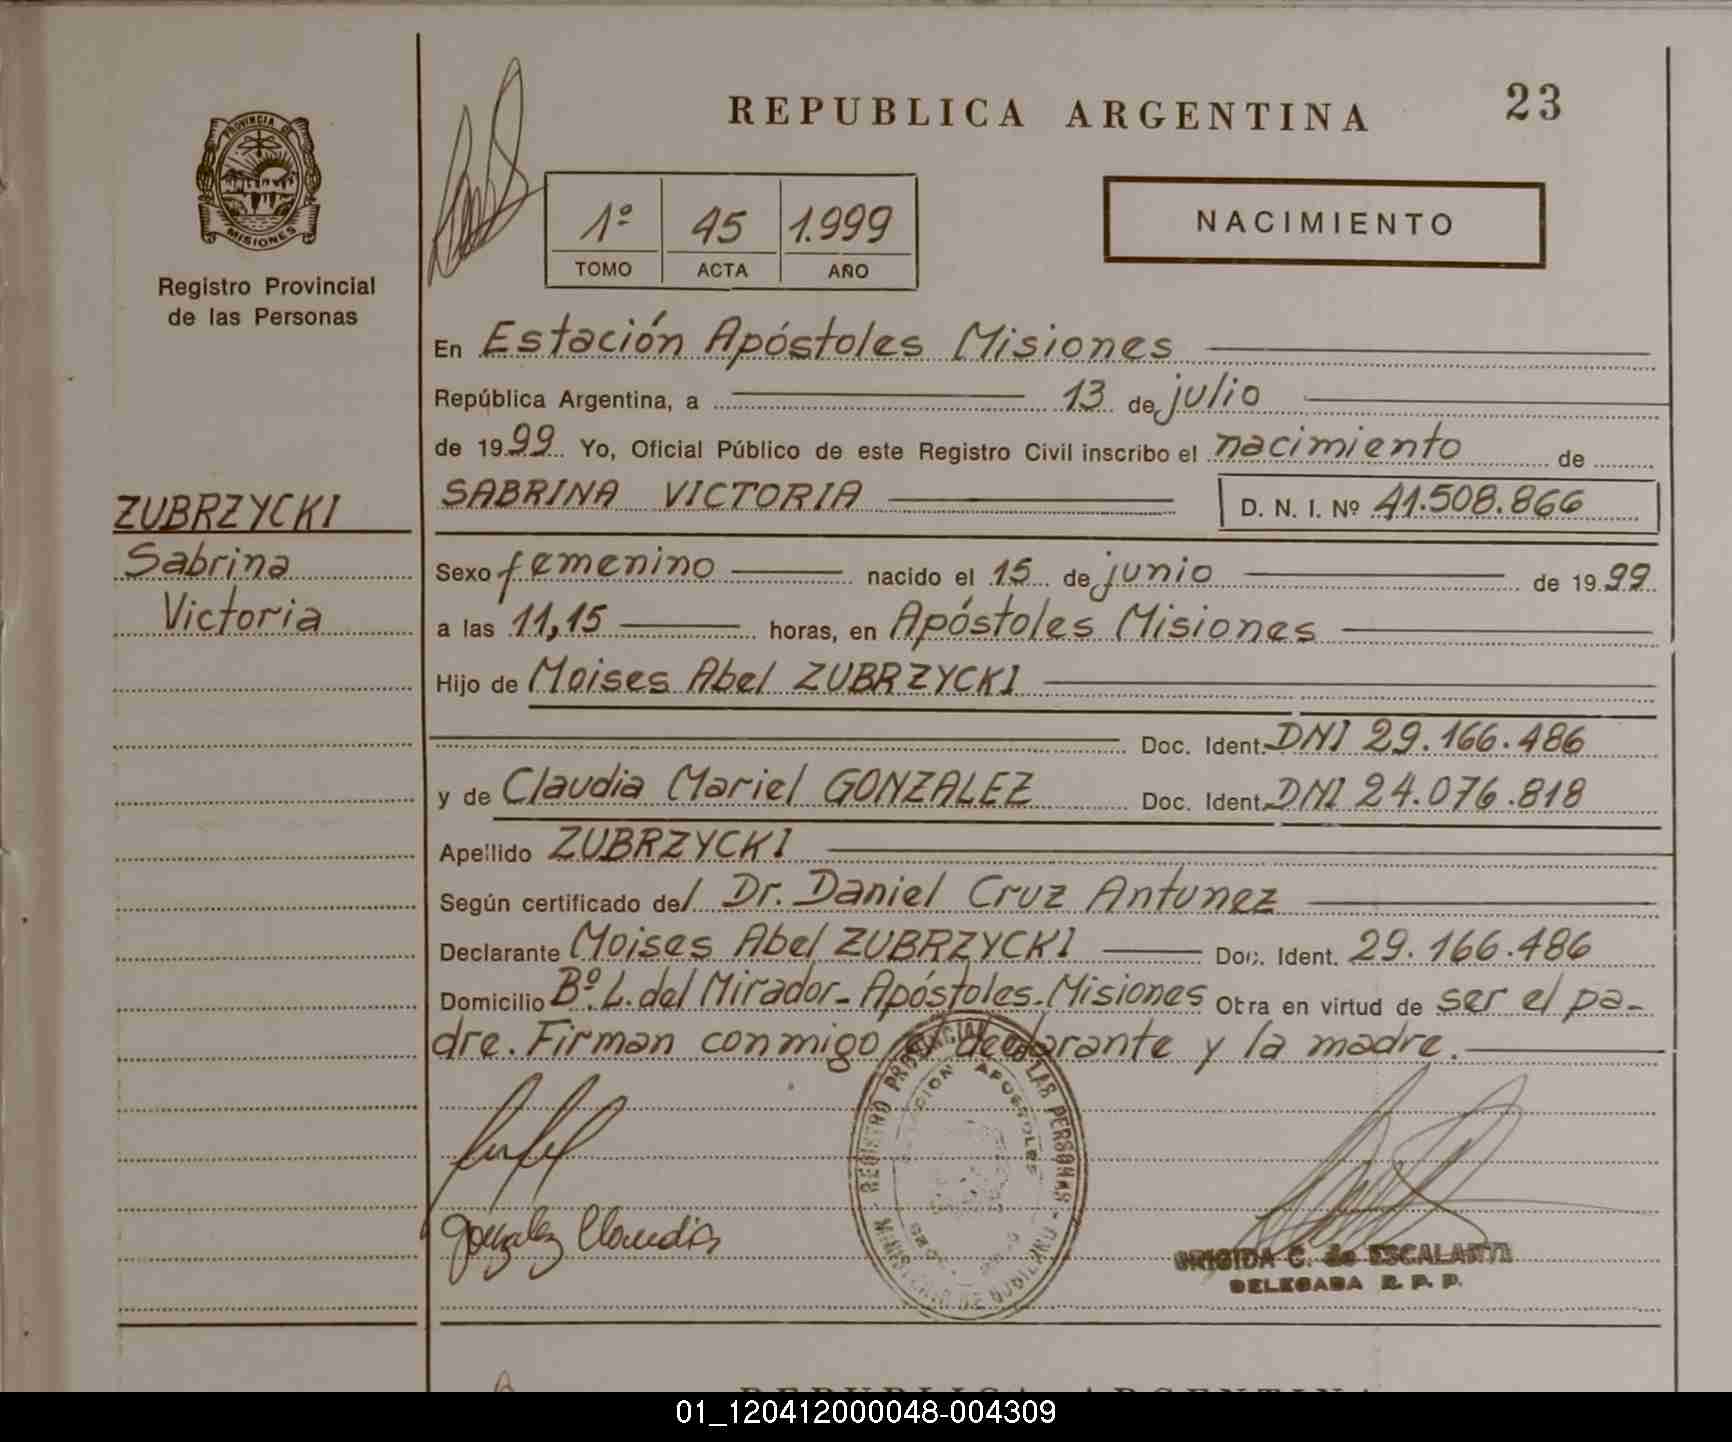 REPUBLICA ARGENTINA 23
PROVINCIA DE
MISIONES
Registro Provincial
de las Personas
1º 45 1.999
TOMO ACTA AÑO
NACIMIENTO
En Estación Apóstoles Misiones
República Argentina, a 13 de julio
de 1999 Yo, Oficial Público de este Registro Civil inscribo el nacimiento de
SABRINA VICTORIA D. N. I. Nº 41.508.866
ZUBRZYCKI
Sabrina
Victoria
Sexo femenino nacido el 15 de junio de 1999
a las 11,15 horas, en Apóstoles Misiones
Hijo de Moises Abel ZUBRZYCKI
Doc. Ident. DNI 29.166.486
y de Claudia Mariel GONZALEZ Doc. Ident. DNI 24.076.818
Apellido ZUBRZYCKI
Según certificado del Dr. Daniel Cruz Antunez
Declarante Moises Abel ZUBRZYCKI Doc. Ident. 29.166.486
Domicilio Bº. L. del Mirador - Apóstoles - Misiones Obra en virtud de ser el pa-
dre. Firman conmigo el declarante y la madre.
REGISTRO PROVINCIAL DE LAS PERSONAS
MINISTERIO DE GOBIERNO
ESTACION APOSTOLES
Gonzalez Claudia
BRIGIDA C. de ESCALANTE
DELEGADA R. P. P.
REPUBLICA ARGENTINA
01_120412000048-004309